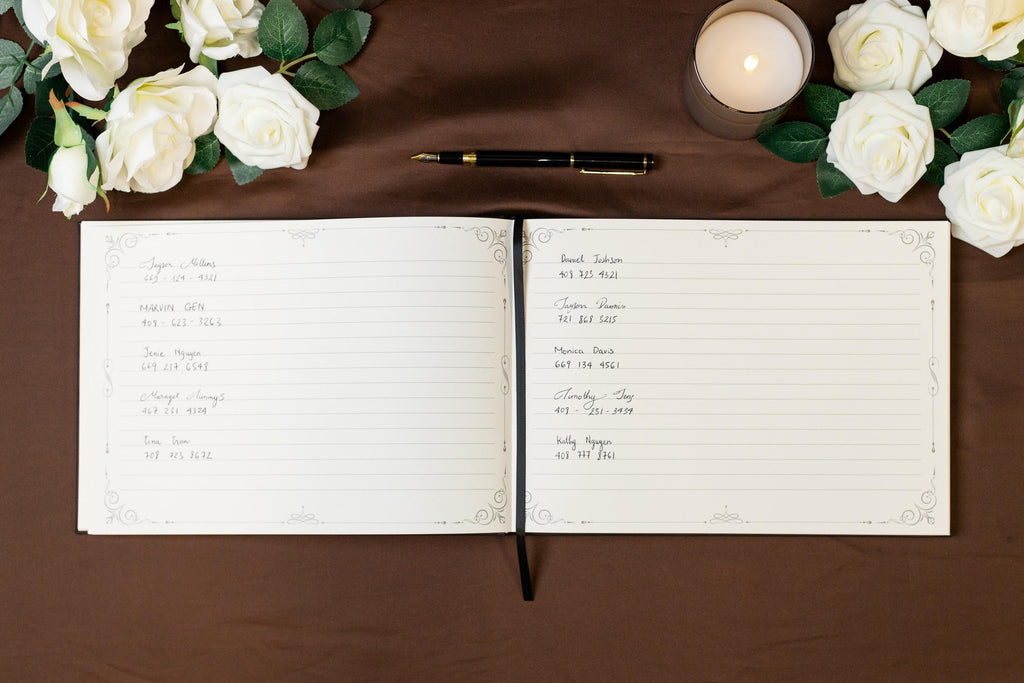 Jayson Mellens
669 - 124 - 4321
MARVIN GEN
408 - 623 - 3263
Jenie Nguyen
669 237 6548
467 231 4324
Tina Tran
708 723 8672
Daniel Joshson
408 723 4321
Jayson Dannis
721 868 3215
Monica Davis
669 134 4561
Timothy Jens
408 - 251 - 3434
Kathy Nguyen
408 777 8761